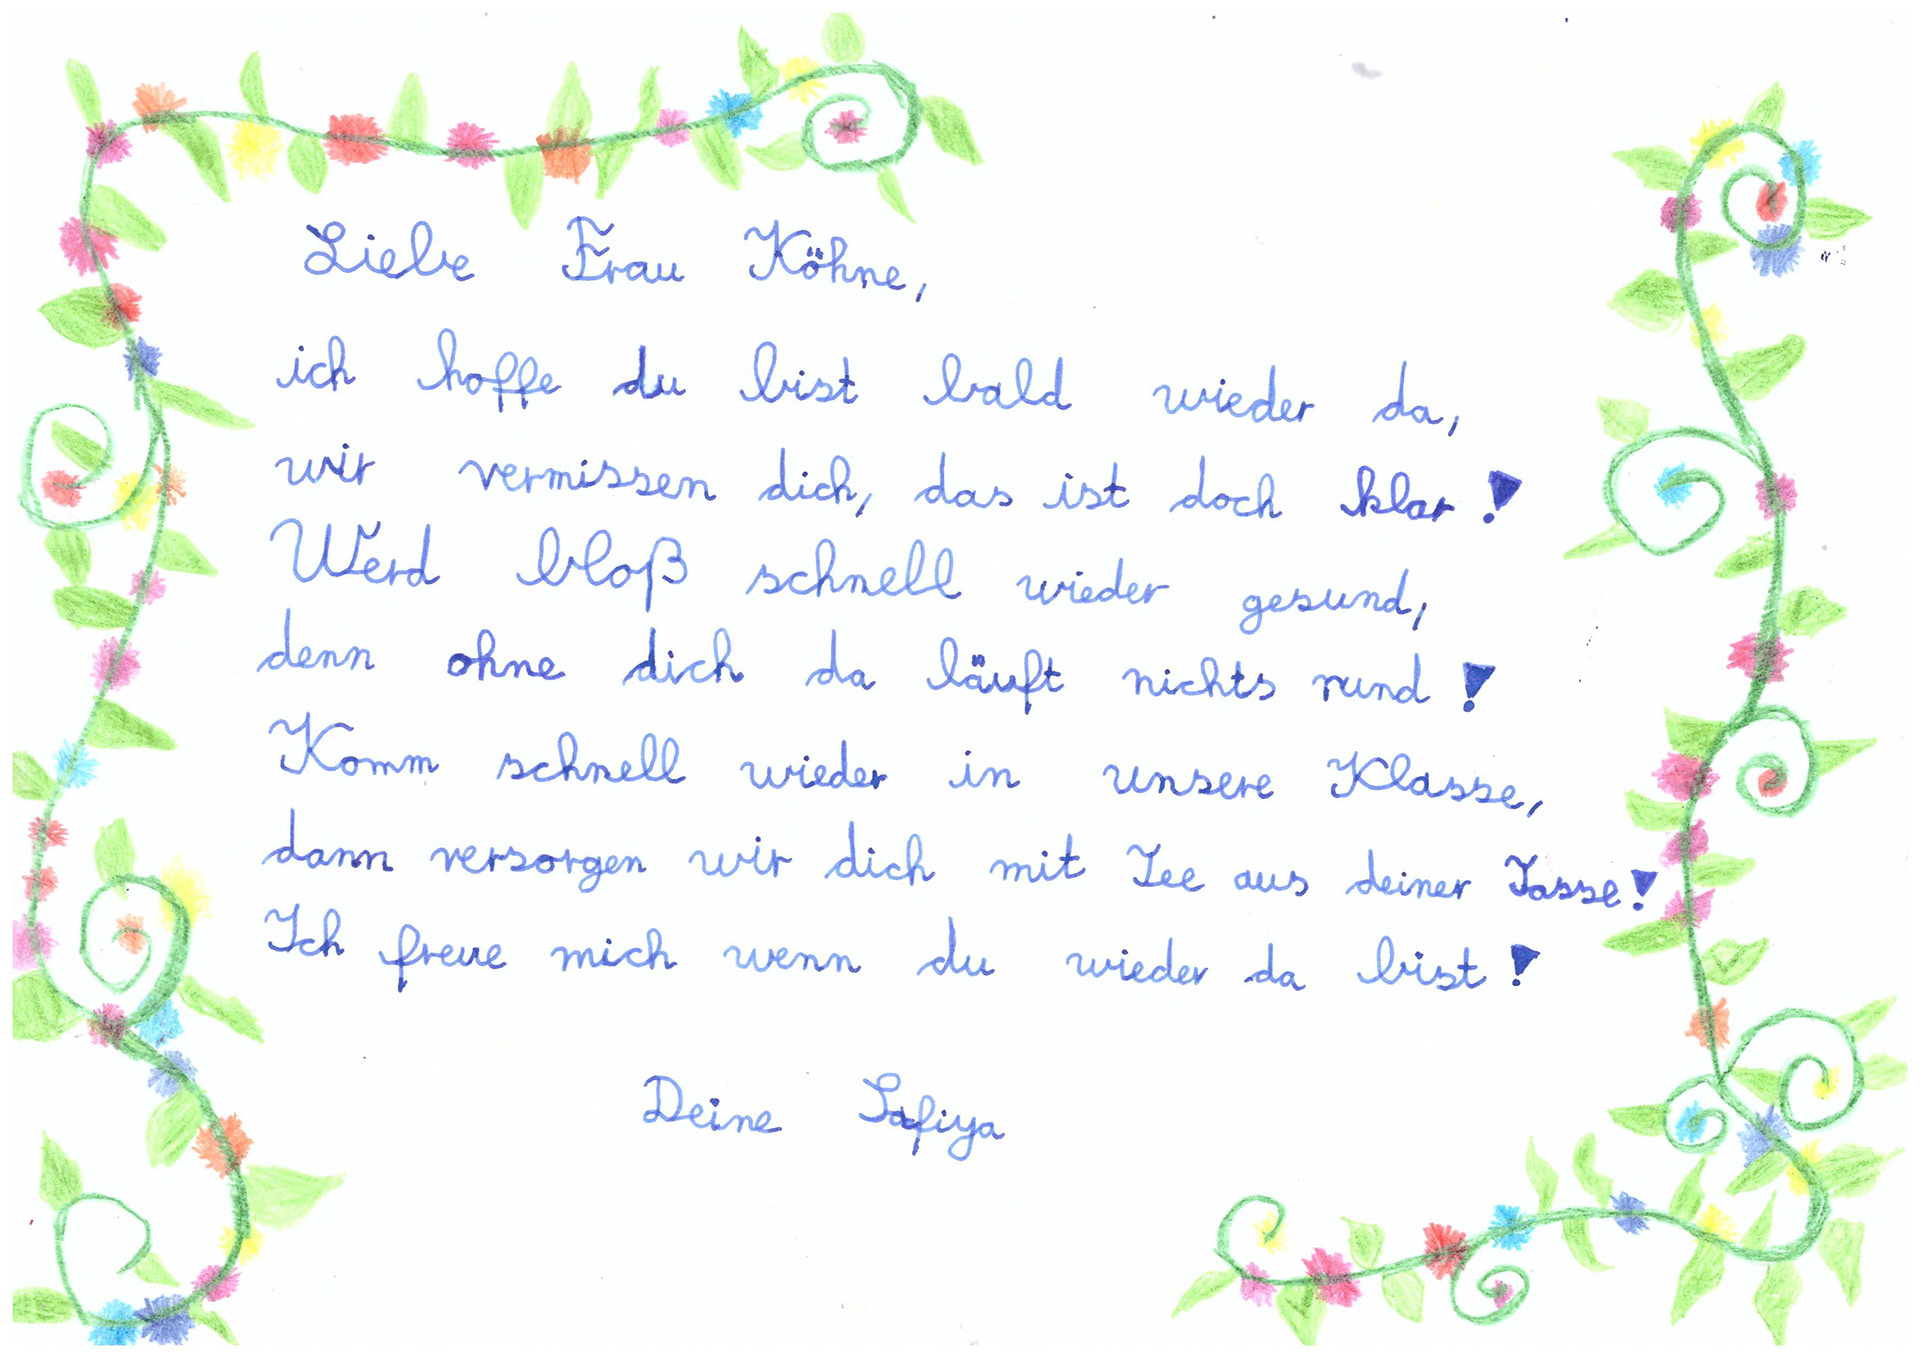 Liebe Frau Köhne,
ich hoffe du bist bald wieder da,
wir vermissen dich, das ist doch klar!
Werd bloß schnell wieder gesund,
denn ohne dich da läuft nichts rund!
Komm schnell wieder in unsere Klasse,
dann versorgen wir dich mit Tee aus deiner Tasse!
Ich freue mich wenn du wieder da bist!
Deine Safiya